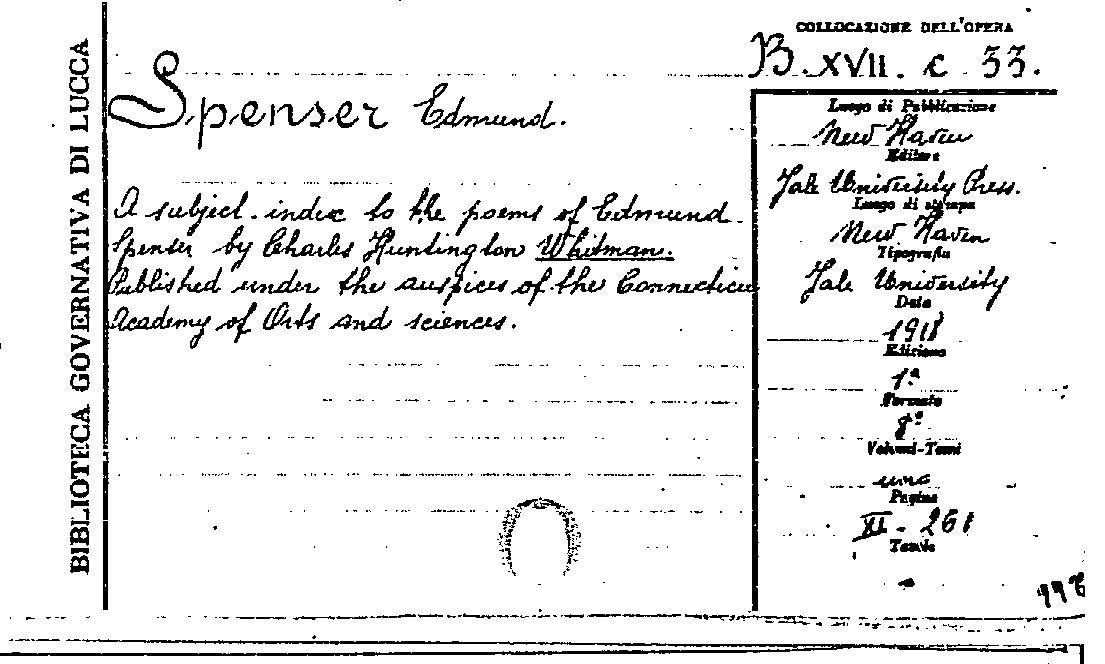 BIBLIOTECA GOVERNATIVA DI LUCCA
COLLOCAZIONE DELL'OPERA
B. XVII. c 33.
Spenser Edmund.
A subject. index to the poems of Edmund
Spenser by Charles Huntington Whitman.
Published under the auspices of the Connecticu
Academy of Arts and sciences.
Luogo di Pubblicazione
New Haven
Editore
Jale University Press.
Luogo di stampa
New Haven
Tipografia
Jale University
Data
1918
Edizione
1.ª
Formato
8º
Volumi-Tomi
uno
Pagine
XI - 261
Tavole
-